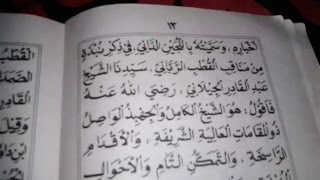 ١٣
أخباره. وسميته باللجين الداني. في ذكر نبذة
من مناقب القطب الرباني. سيدنا الشيخ
عبد القادر الجيلاني. رضي الله عنه
فأقول: هو الشيخ الكامل والجهبذ الواصل
ذو المقامات العالية الشريفة. والأقدام
الراسخة. والتمكن التام والأحوال
القطب